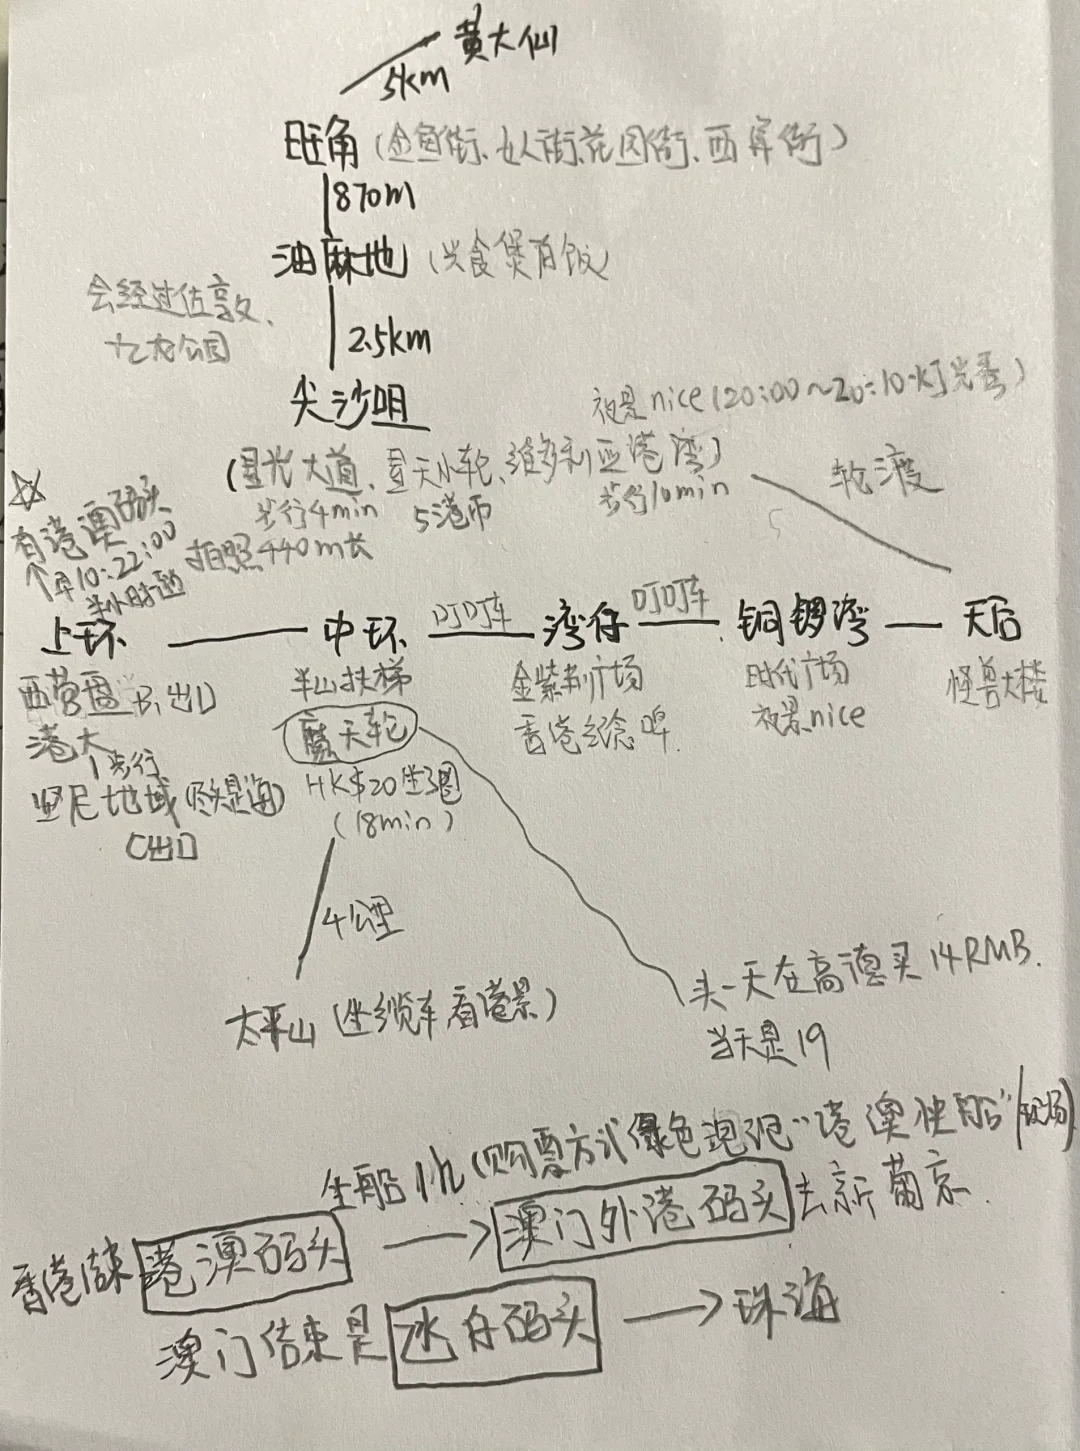 黄大仙
5km
旺角(金鱼街、女人街、花园街、西洋街)
870m
油麻地(兴食煲有饭)
会经过佐敦、
九龙公园
2.5km
尖沙咀
夜景nice(20:00~20:10灯光秀)
(星光大道、星天小轮、维多利亚港湾)
步行4min
5港币
步行10min
拍照440m长
轮渡
有港澳码头
早10:22:00
半小时一趟
上环
中环
叮叮车
湾仔
叮叮车
铜锣湾
天后
西营盘 B1出口
港大
步行
坚尼地城(尽头是海)
C出口
半山扶梯
摩天轮
HK$20坐3圈
(18min)
金紫荆广场
香港纪念碑
时代广场
夜景nice
怪兽大楼
4公里
太平山(坐缆车看港景)
头一天在高德买14RMB.
当天是19
坐船1h(购票方式绿色泡泡"港澳快船"/现场)
香港结束港澳码头
澳门外港码头去新葡京.
澳门结束是氹仔码头
珠海